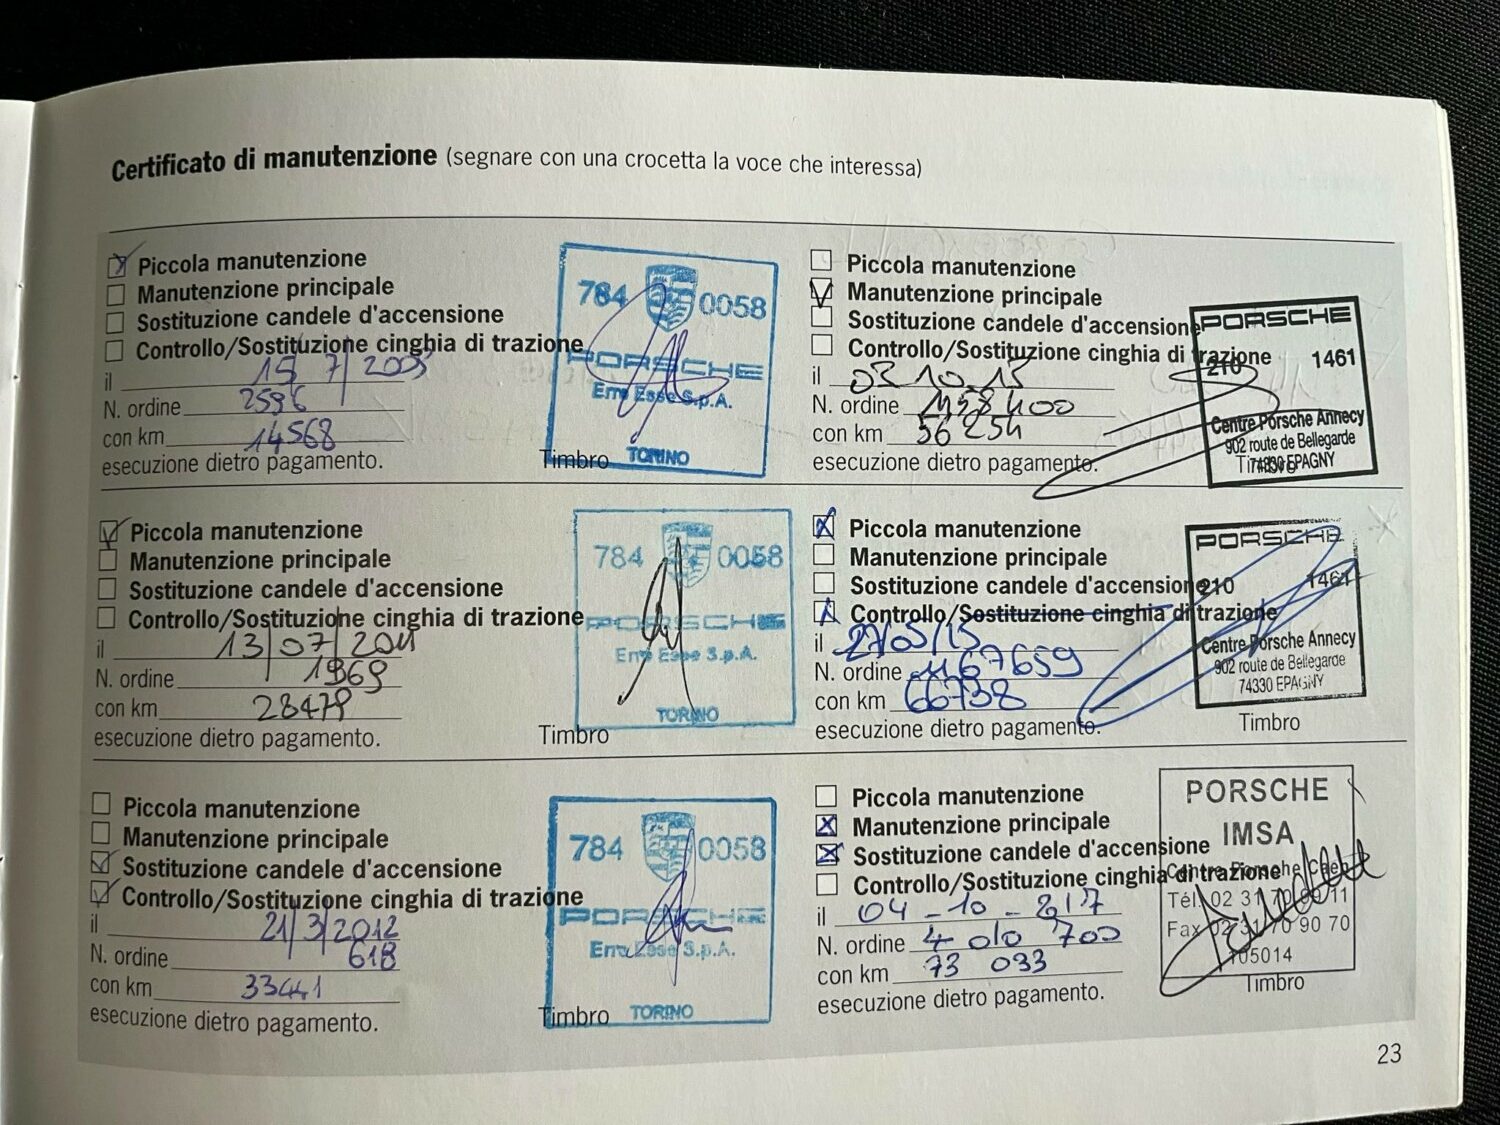 Certificato di manutenzione (segnare con una crocetta la voce che interessa)
Piccola manutenzione
Manutenzione principale
Sostituzione candele d'accensione
Controllo/Sostituzione cinghia di trazione
il 15/7/2009
N. ordine 2596
con km 14568
esecuzione dietro pagamento.
Timbro
784 0058
PORSCHE
Erre Esse S.p.A.
TORINO
Piccola manutenzione
Manutenzione principale
Sostituzione candele d'accensione
Controllo/Sostituzione cinghia di trazione
il 13/07/2011
N. ordine 1969
con km 28479
esecuzione dietro pagamento.
Timbro
784 0058
PORSCHE
Erre Esse S.p.A.
TORINO
Piccola manutenzione
Manutenzione principale
Sostituzione candele d'accensione
Controllo/Sostituzione cinghia di trazione
il 21/3/2012
N. ordine 618
con km 33441
esecuzione dietro pagamento.
Timbro
784 0058
PORSCHE
Erre Esse S.p.A.
TORINO
Piccola manutenzione
Manutenzione principale
Sostituzione candele d'accensione
Controllo/Sostituzione cinghia di trazione
il 02.10.13
N. ordine 1158400
con km 56254
esecuzione dietro pagamento.
Timbro
PORSCHE
210 1461
Centre Porsche Annecy
902 route de Bellegarde
74330 EPAGNY
Piccola manutenzione
Manutenzione principale
Sostituzione candele d'accensione
Controllo/Sostituzione cinghia di trazione
il 27/05/15
N. ordine 1167659
con km 66738
esecuzione dietro pagamento.
Timbro
PORSCHE
210 1461
Centre Porsche Annecy
902 route de Bellegarde
74330 EPAGNY
Piccola manutenzione
Manutenzione principale
Sostituzione candele d'accensione
Controllo/Sostituzione cinghia di trazione
il 04-10-217
N. ordine 4 010 700
con km 73 033
esecuzione dietro pagamento.
Timbro
PORSCHE
IMSA
Centre Porsche Caen
Tél. 02 31 70 90 11
Fax 02 31 70 90 70
105014
23